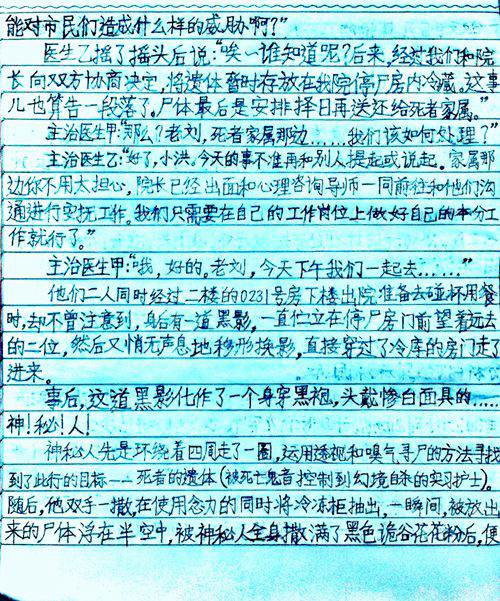 能对市民们造成什么样的威胁啊?”
医生乙摇了摇头后说:“唉—谁知道呢?后来,经过我们和院
长向双方协商决定,将遗体暂时存放在我院停尸房内冷藏。这事
儿也算告一段落了。尸体最后是安排择日再送还给死者家属。”
主治医生甲:“那么?老刘,死者家属那边……我们该如何处理?”
主治医生乙:“好了,小洪。今天的事不准再和别人提起或说起。家属那
边你不用太担心,院长已经出面和心理咨询导师一同前往和他们沟
通进行安抚工作。我们只需要在自己的工作岗位上做好自己的本分工
作就行了。”
主治医生甲:“哦,好的。老刘,今天下午我们一起去……”
他们二人同时经过二楼的0231号房下楼出院准备去碰杯用餐
时,却不曾注意到,身后有一道黑影,一直伫立在停尸房门前望着远去
的二位,然后又悄无声息地移形换影,直接穿过了冷库的房门走了
进来。
事后,这道黑影化作了一个身穿黑袍,头戴惨白面具的……
神!秘!人!
神秘人先是环绕着四周走了一圈,运用透视和嗅气寻尸的方法寻找
到了此行的目标——死者的遗体(被死亡鬼音控制到幻境自杀的实习护士)。
随后,他双手一撒,在使用念力的同时将冷冻柜抽出,一瞬间,被放出
来的尸体浮在半空中,被神秘人全身撒满了黑色诡谷花花粉后,便